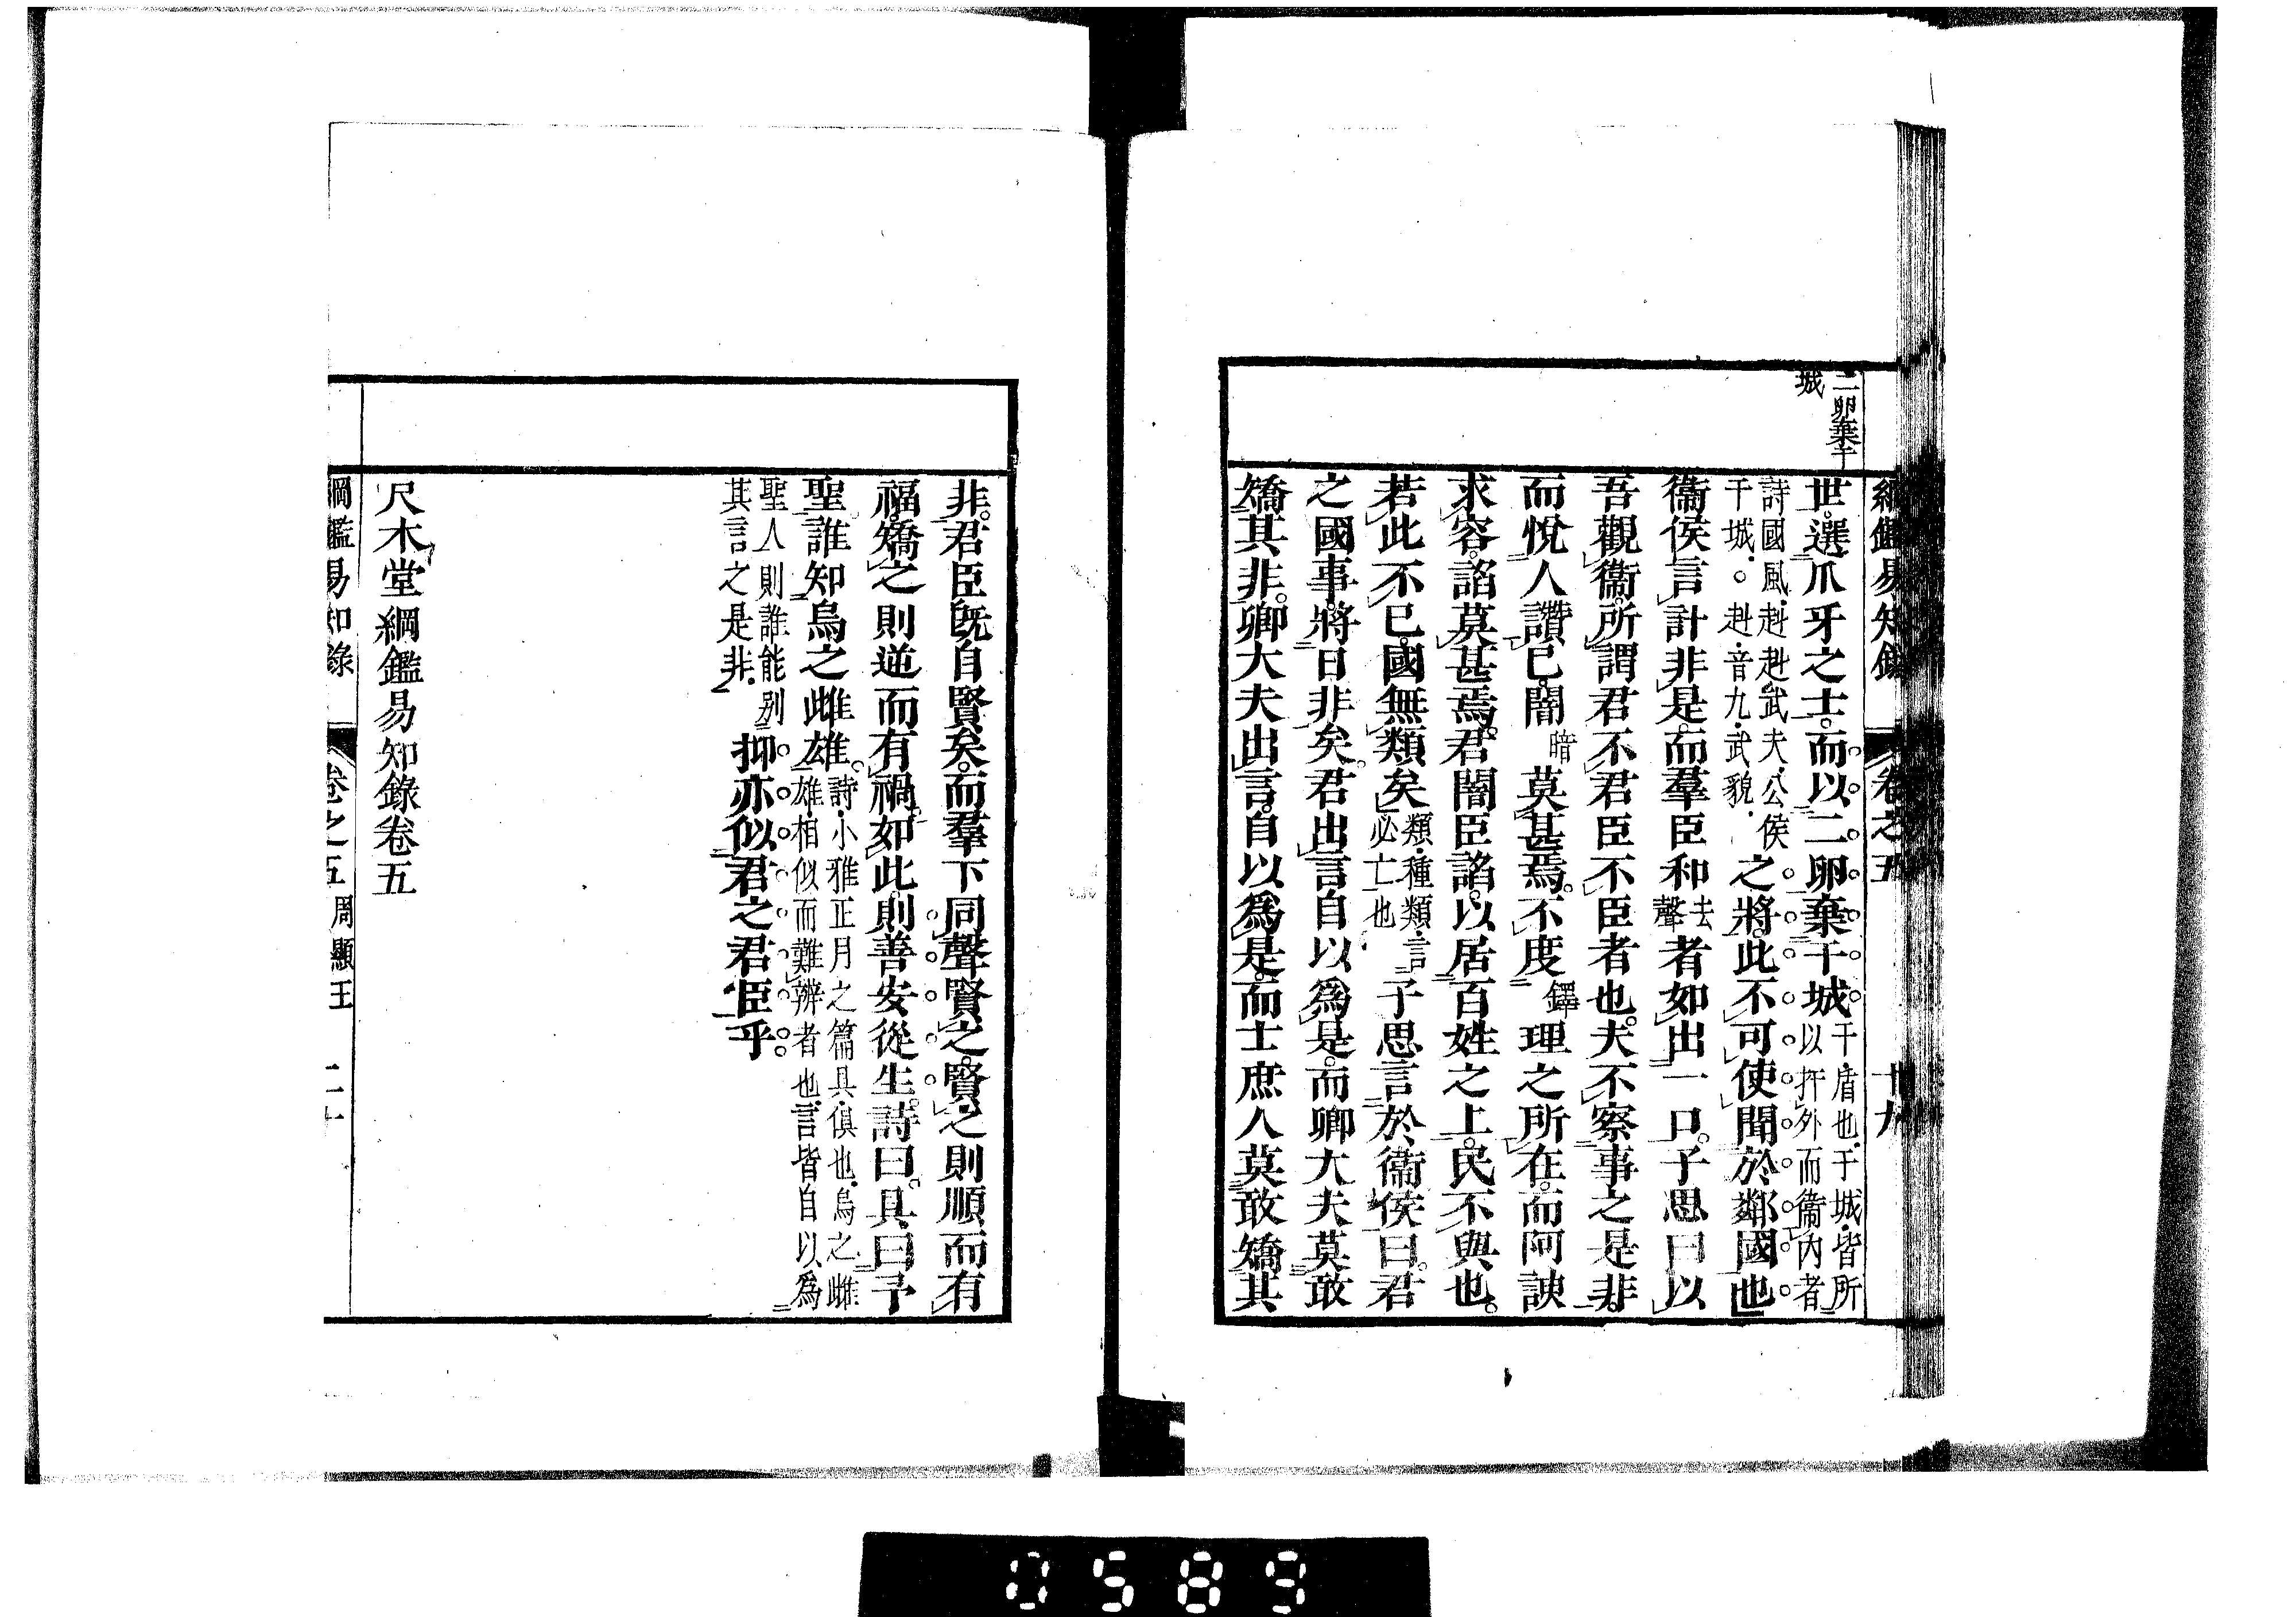 綱鑑易知錄 卷之五 十九
二卵棄干
城
世。選爪牙之士。而以二卵棄干城 干、盾也、干城、皆所
以扞外而衞內者
詩國風、赳赳武夫、公侯
干城。○赳、音九、武貌、
之將。此不可使聞於鄰國也
衞侯言計非是。而羣臣和 去
聲 者如出一口。子思曰以
吾觀衞。所謂君不君臣不臣者也。夫不察事之是非。
而悅人讚已。闇 暗 莫甚焉。不度 鐸 理之所在。而阿諛
求容。諂莫甚焉。君闇臣諂。以居百姓之上。民不與也。
若此不已。國無類矣 類、種類、言
必亡也 子思言於衞侯曰。君
之國事。將日非矣。君出言自以爲是。而卿大夫莫敢
矯其非。卿大夫出言。自以爲是。而士庶人莫敢矯其
非。君臣旣自賢矣。而羣下同聲賢之。賢之則順而有
福。矯之則逆而有禍。如此。則善安從生。詩曰。具曰予
聖。誰知烏之雌雄。 詩、小雅正月之篇具、俱也、烏之雌
雄、相似而難辨者也、言皆自以爲
聖人則誰能別
其言之是非、
抑亦似君之君臣乎
尺木堂綱鑑易知錄卷五
綱鑑易知錄 卷之五 周顯王 二十
0589